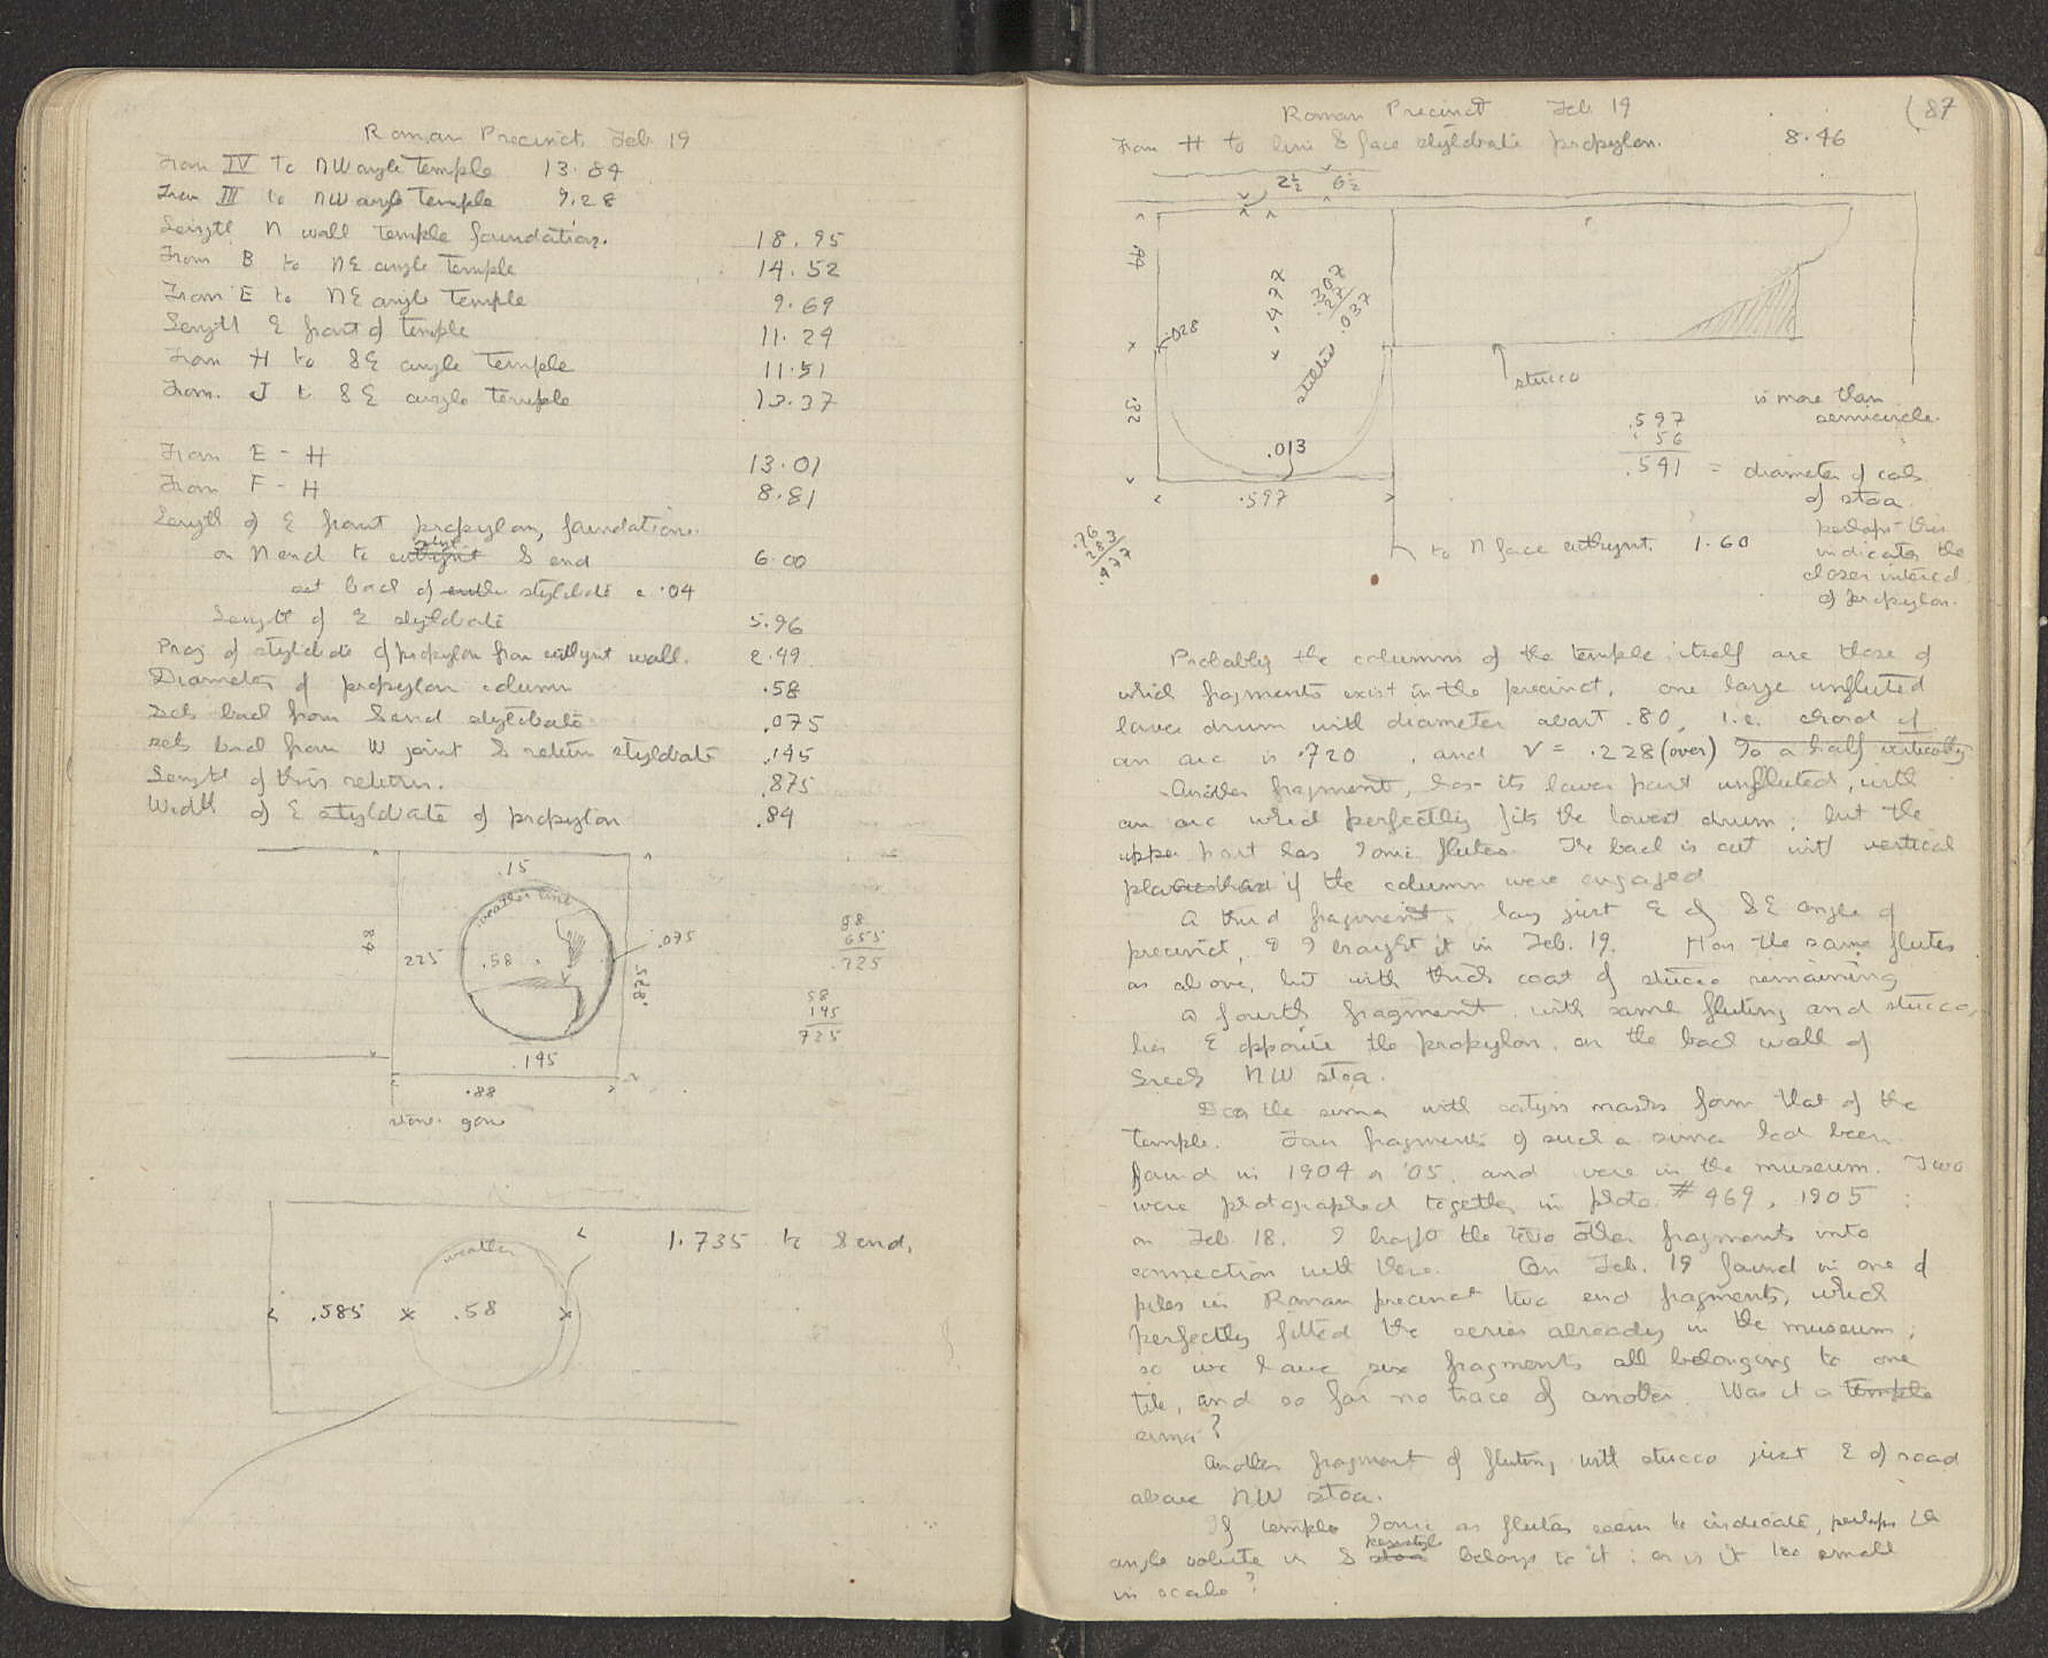 Roman Precinct Feb 19
From IV to NW angle Temple 13.84
From III to NW angle Temple 9.28
Length N wall Temple foundation. 18.95
From B to NE angle Temple 14.52
From E to NE angle Temple 9.69
Length E front of temple 11.29
From H to SE angle Temple 11.51
From J to SE angle Temple 13.37
From E - H 13.01
From F - H 8.81
Length of E front propylon, foundations.
on N end to S end 6.00
set back of stylobate = .04
Length of E stylobate 5.96
Proj of stylobate of propylon from euthynt wall. 2.49
Diameter of propylon column .58
Sets back from S end stylobate .075
sets back from W joint S return stylobate .145
Length of this return. .875
Width of E stylobate of propylon .84
.15
weather line
.84
225
.58
.075
.825
.145
.88
stone gone
58
655
.225
58
145
725
weather
1.735 to S end.
.585
.58
Roman Precinct Feb 19
(87
From H to line S face stylobate propylon. 8.46
2½ 6½
.44
.477
.307
.27
.037
.028
stilted
.32
.013
.597
stucco
is more than
semicircle.
.597
.56
.541 = diameter of cols
of stoa
perhaps this
indicates the
closer intercol
of propylon.
.76
283
.477
to N face euthynt. 1.60
Probably the columns of the temple itself are those of
which fragments exist in the precinct, one large unfluted
lower drum with diameter about .80, i.e. chord of
an arc is .720, and V = .228 (over) To a half vertically
Another fragment, has its lower part unfluted, with
an arc which perfectly fits the lowest drum; but the
upper part has Ionic flutes. The back is cut with vertical
if the column were engaged
A third fragment, lay just E of SE angle of
precinct, & I brought it in Feb. 19. Has the same flutes
as above, but with thick coat of stucco remaining
A fourth fragment with same fluting and stucco,
lies E opposite the propylon, on the back wall of
Greek NW stoa.
Does the sima with satyrs masks form that of the
temple. Four fragments of such a sima had been
found in 1904 or '05, and were in the museum. Two
were photographed together in photo. #469, 1905 :
on Feb 18. I brought the two other fragments into
connection with these. On Feb. 19 found in one of
piles in Roman precinct two end fragments, which
perfectly fitted the series already in the museum;
so we have six fragments all belonging to one
tile, and so far no trace of another. Was it a temple
sima?
Another fragment of fluting with stucco just E of road
above NW stoa.
If temple Ionic as flutes seem to indicate, perhaps the
angle volute in S peristyle stoa belongs to it : or is it too small
in scale?